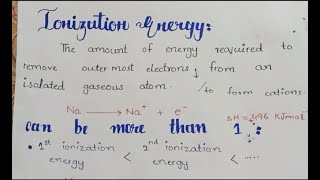 Ionization Energy:
The amount of energy required to
remove outer most electrons ↓ from an
isolated gaseous atom. /to form cations.
Na ⟶ Na⁺ + e⁻
ΔH = 496 KJmol⁻¹
can be more than 1:
• 1st ionization energy < 2nd ionization energy < .....